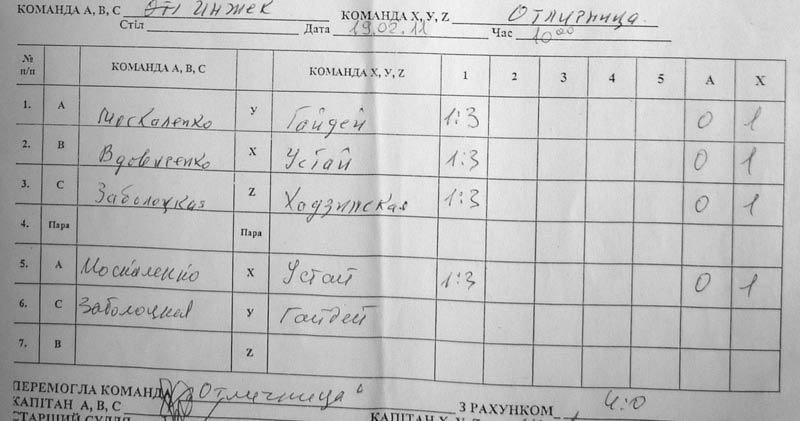 КОМАНДА А, В, С ОТГ Инжек КОМАНДА X, У, Z Отличница
Стіл Дата 19.02.11 Час 10⁰⁰
№ п/п КОМАНДА А, В, С КОМАНДА X, У, Z 1 2 3 4 5 А X
1. А Москаленко У Гайдей 1:3 0 1
2. В Вдовиченко X Устай 1:3 0 1
3. С Заболоцкая Z Хадзинская 1:3 0 1
4. Пара Пара
5. А Москаленко X Устай 1:3 0 1
6. С Заболоцкая У Гайдей
7. В Z
ПЕРЕМОГЛА КОМАНДА "Отличница" З РАХУНКОМ 4:0
КАПІТАН А, В, С КАПІТАН X, У, Z
СТАРШИЙ СУДДЯ